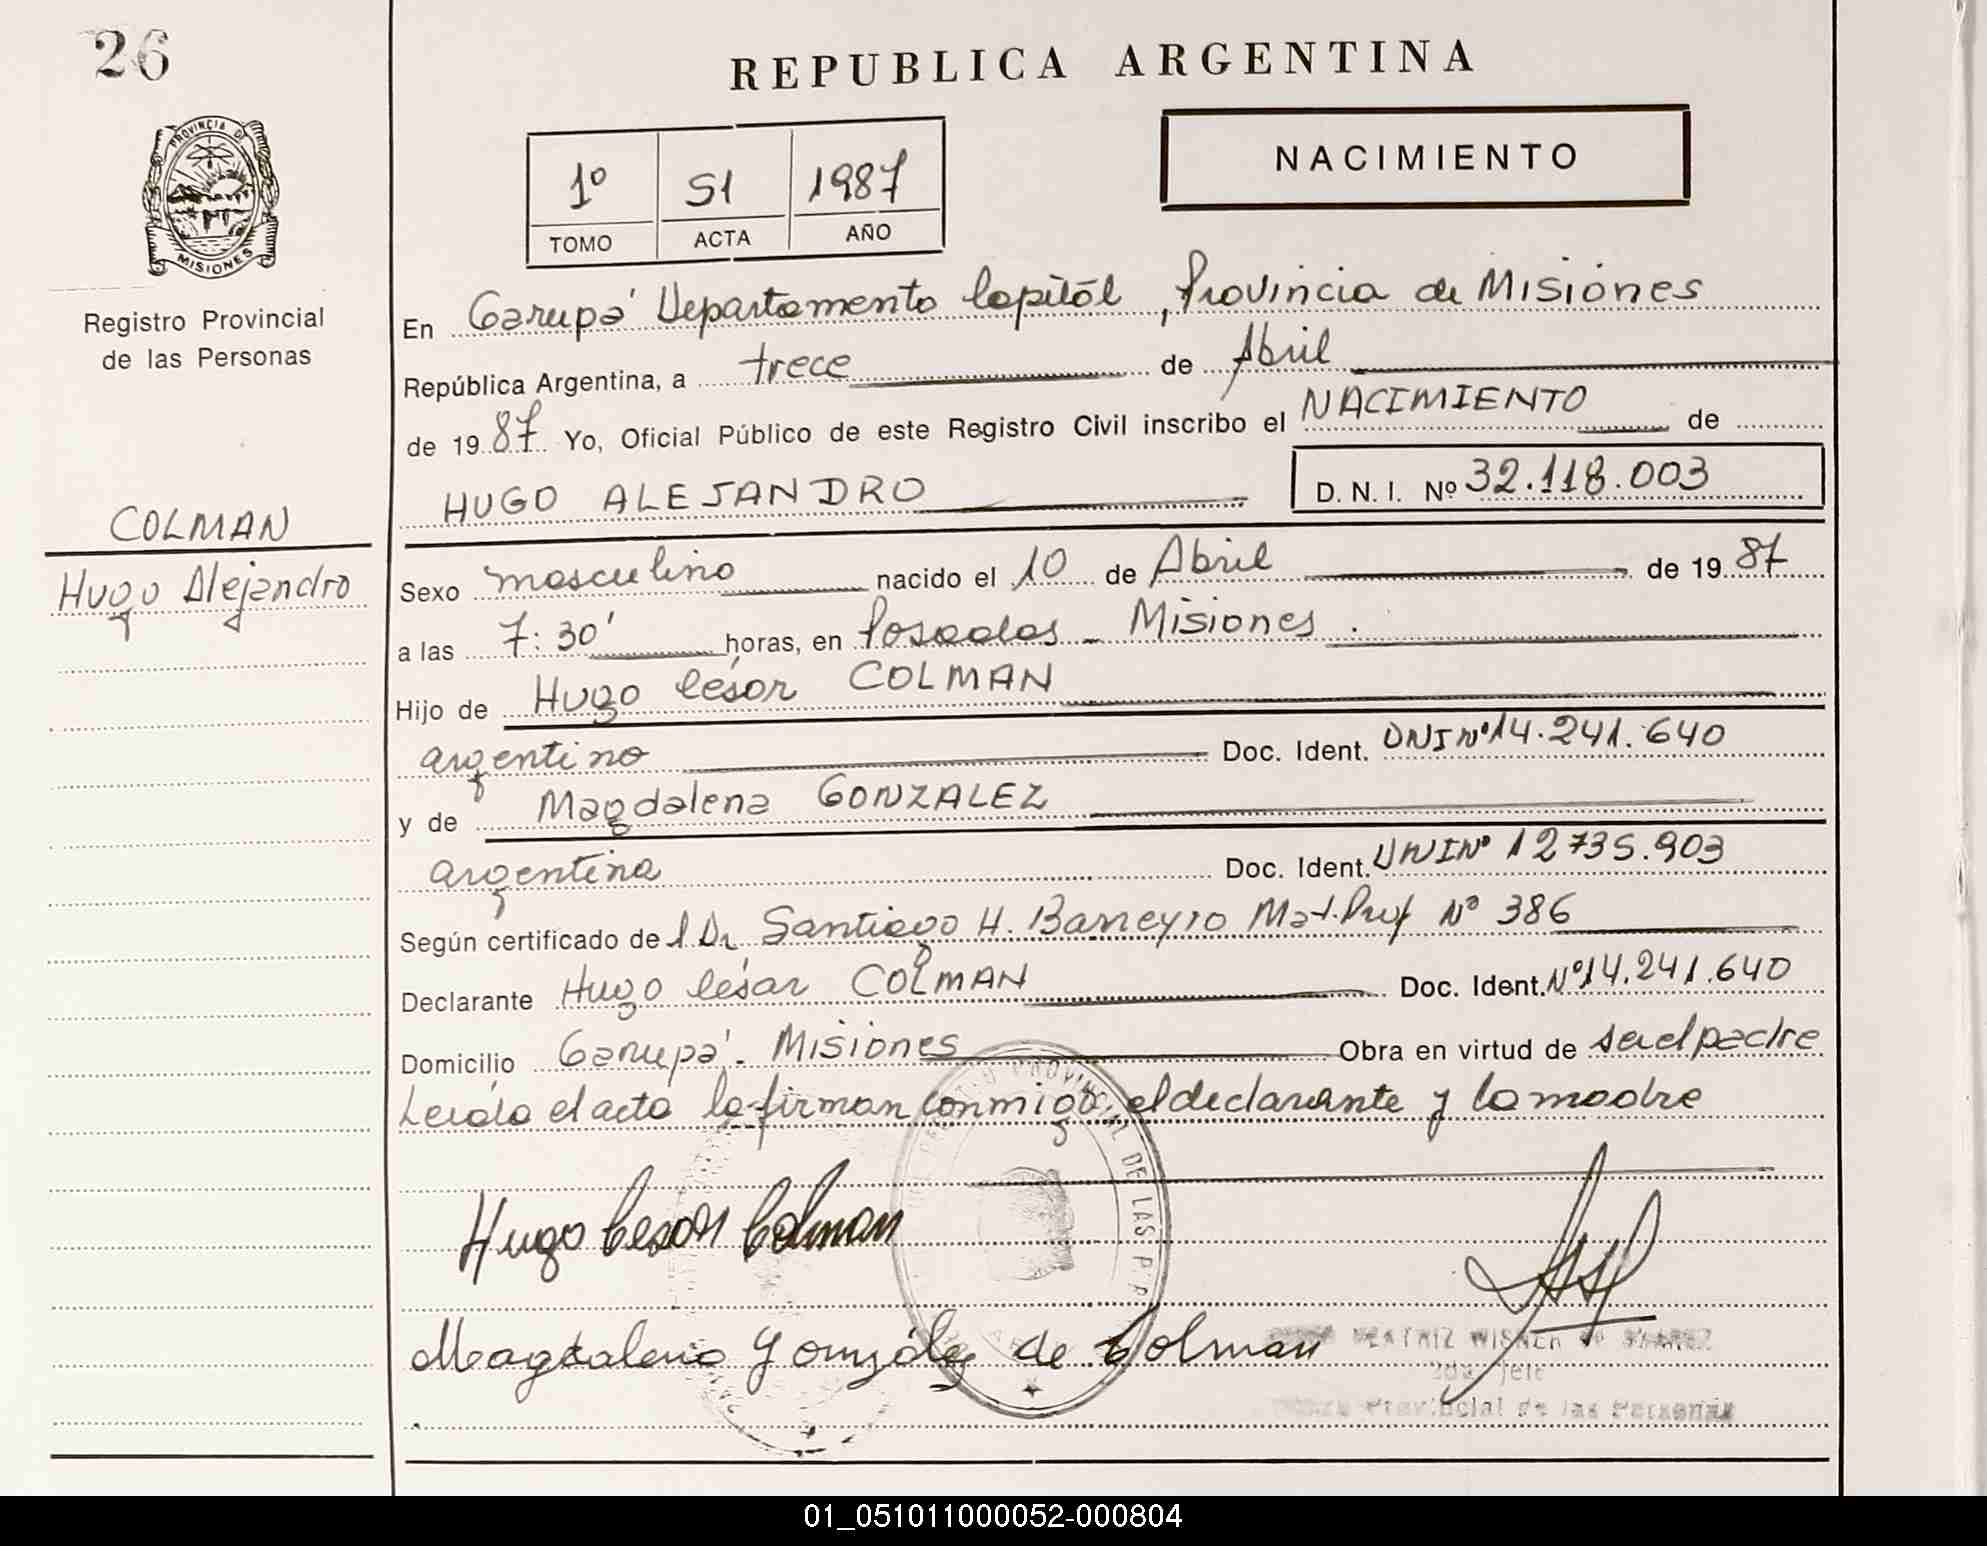 26
REPUBLICA ARGENTINA
PROVINCIA DE
MISIONES
Registro Provincial
de las Personas
1º 51 1987
TOMO ACTA AÑO
NACIMIENTO
En Garupá Departamento Capital, Provincia de Misiones
República Argentina, a trece de Abril
de 1987 Yo, Oficial Público de este Registro Civil inscribo el NACIMIENTO de
HUGO ALEJANDRO D. N. I. Nº 32.118.003
COLMAN
Hugo Alejandro
Sexo masculino nacido el 10 de Abril de 1987
a las 7:30' horas, en Posadas - Misiones.
Hijo de Hugo César COLMAN
argentino Doc. Ident. DNI Nº 14.241.640
y de Magdalena GONZALEZ
argentina Doc. Ident. DNI Nº 12.735.903
Según certificado del Dr Santiago H. Barreyro Mat. Prof Nº 386
Declarante Hugo César COLMAN Doc. Ident. Nº 14.241.640
Domicilio Garupá - Misiones Obra en virtud de ser el padre
Leída el acta la firman conmigo, el declarante y la madre
Hugo Cesar Colman
Magdalena González de Colman
BEATRIZ
2da. Jefe
Provincial de las Personas
01_051011000052-000804